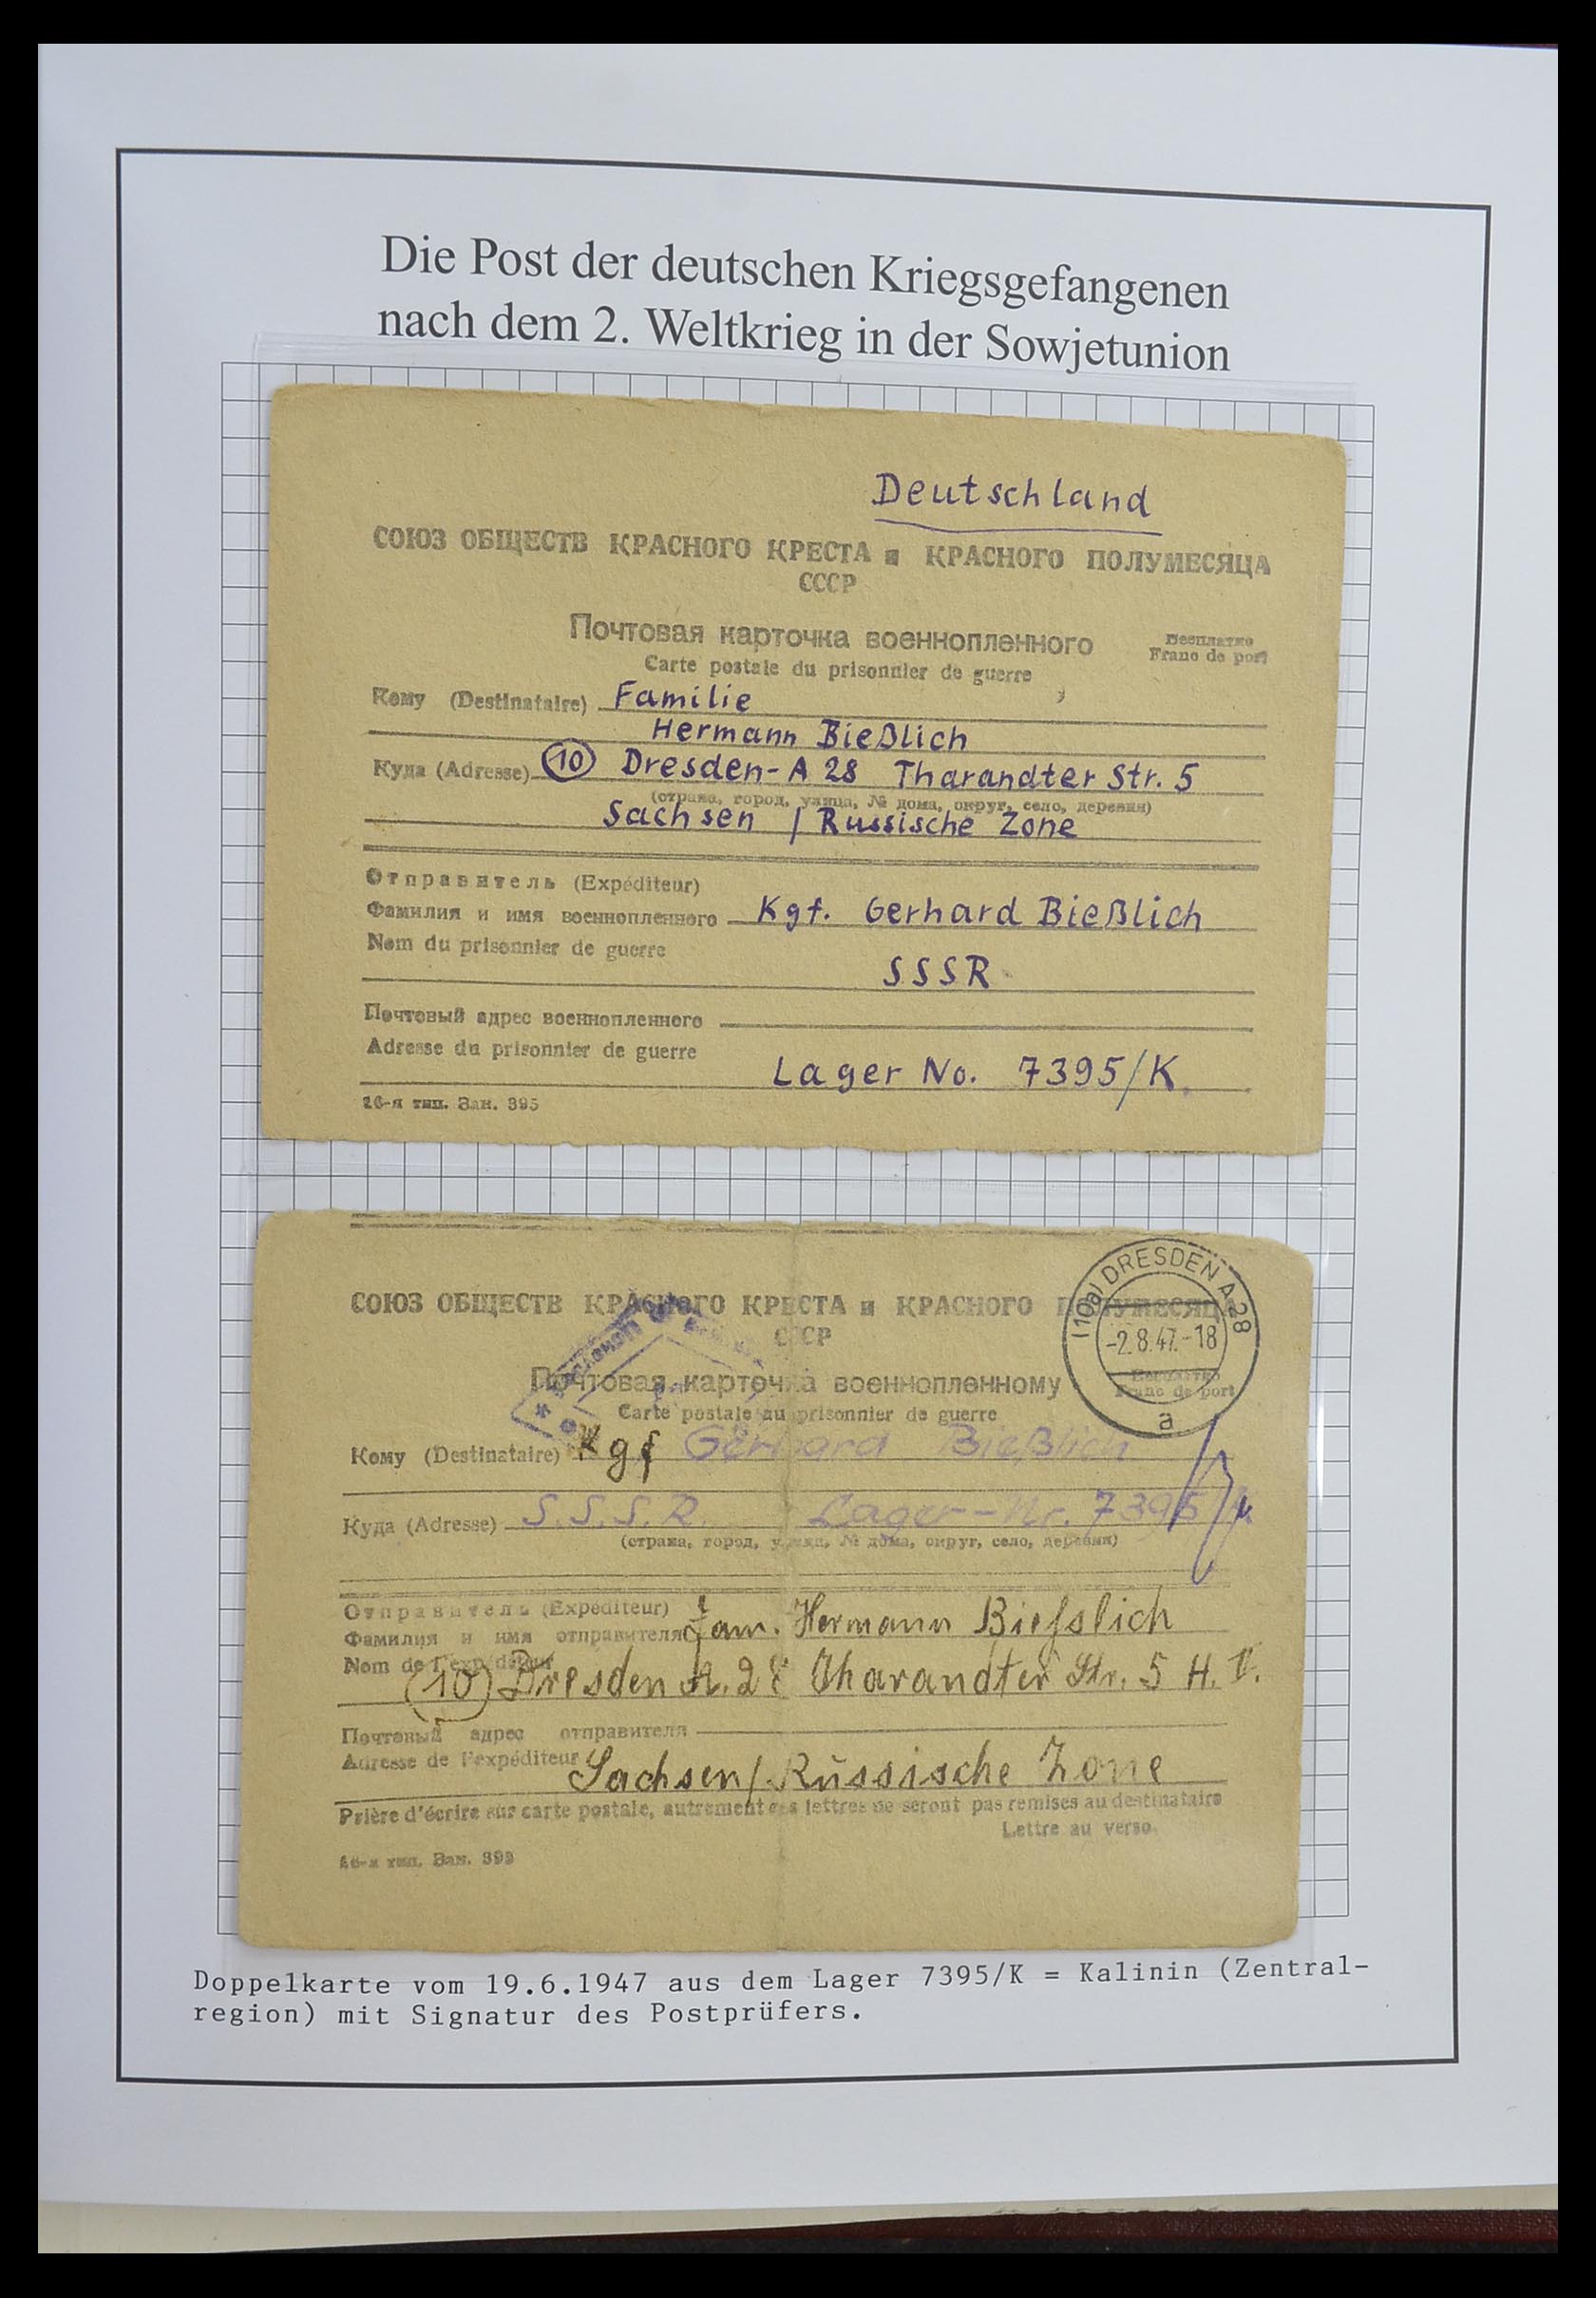 Die Post der deutschen Kriegsgefangenen
nach dem 2. Weltkrieg in der Sowjetunion
Deutschland
СОЮЗ ОБЩЕСТВ КРАСНОГО КРЕСТА и КРАСНОГО ПОЛУМЕСЯЦА
СССР
Почтовая карточка военнопленного
Бесплатно
Carte postale du prisonnier de guerre
Franc de port
Кому (Destinataire) Familie
Hermann Bießlich
Куда (Adresse) 10 Dresden-A 28 Tharandter Str. 5
(страна, город, улица, № дома, округ, село, деревня)
Sachsen / Russische Zone
Отправитель (Expéditeur)
Фамилия и имя военнопленного Kgf. Gerhard Bießlich
Nom du prisonnier de guerre
SSSR
Почтовый адрес военнопленного
Adresse du prisonnier de guerre
Lager No. 7395/K.
16-я тип. Зак. 395
СОЮЗ ОБЩЕСТВ КРАСНОГО КРЕСТА и КРАСНОГО ПОЛУМЕСЯЦА
СССР
(10a) DRESDEN A 28
-2.8.47.-18
a
Почтовая карточка военнопленному
Бесплатно
Franc de port
Carte postale au prisonnier de guerre
Кому (Destinataire) Kgf Gerhard Bießlich
Куда (Adresse) S.S.S.R. Lager-Nr. 7395/
(страна, город, улица, № дома, округ, село, деревня)
Отправитель (Expéditeur)
Фамилия и имя отправителя Fam. Hermann Bießlich
Nom de l'expéditeur
(10) Dresden A. 28 Tharandter Str. 5 H. I.
Почтовый адрес отправителя
Adresse de l'expéditeur Sachsen/Russische Zone
Prière d'écrire sur carte postale, autrement ces lettres ne seront pas remises au destinataire
Lettre au verso.
16-я тип. Зак. 393
Doppelkarte vom 19.6.1947 aus dem Lager 7395/K = Kalinin (Zentral-
region) mit Signatur des Postprüfers.